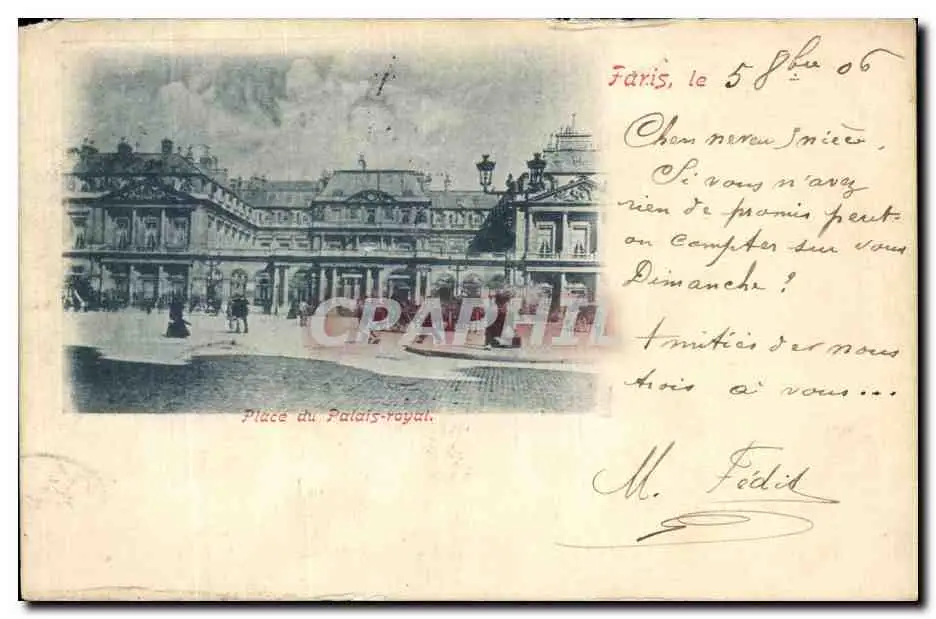 Paris, le 5 8bre 06
Cher neveu, nièce,
Si vous n'avez
rien de promis peut-
on compter sur vous
Dimanche ?
Amitiés de nous
trois à vous...
M. Fédit
Place du Palais-royal.
CPAPHIL